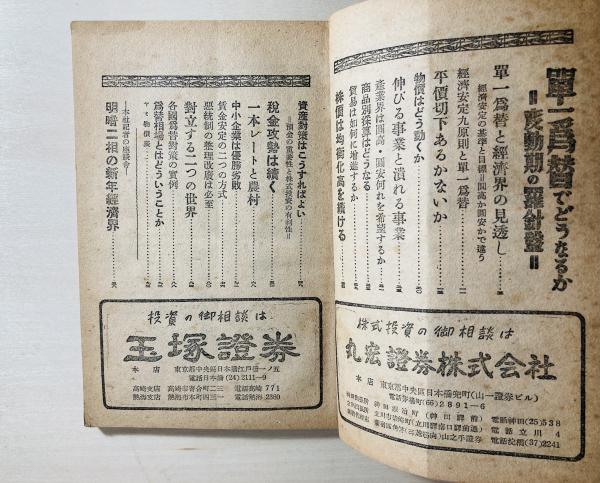 單一爲替でどうなるか
＝変動期の羅針盤＝
單一爲替と經濟界の見透し
經濟安定の基準と目標＝圓高か圓安かで違う
經濟安定九原則と單一爲替
平價切下あるかないか
物價はどう動くか
伸びる事業と潰れる事業
産業界は圓高・圓安何れを希望するか
商品別採算はどうなる
貿易は如何に増進するか
株價は均衡化高を續ける
株式投資の御相談は
丸宏證券株式会社
本店 東京都中央區日本橋兜町(山一證券ビル)
電話茅場町(66)2891－6
電話神田(25)538
電話立川4
電話淀橋(37)2241
資産對策はこうすればよい
＝預金の重要性と株式投資の有利性＝
税金攻勢は續く
一本レートと農村
中小企業は優勝劣敗
賃金安定の二つの方式
惡統制の整理改廢は必至
對立する二つの世界
各國爲替對策の實例
爲替相場とはどういうことか
ヤミ物價表
―本社記者の座談會―
明暗二相の新年經濟界
投資の御相談は
玉塚證券
本店 東京都中央區日本橋江戸橋一ノ五
電話日本橋(24)2111－9
高崎支店 高崎市寄合町二三 電話高崎771
熱海支店 熱海市本町四三一 電話熱海2360